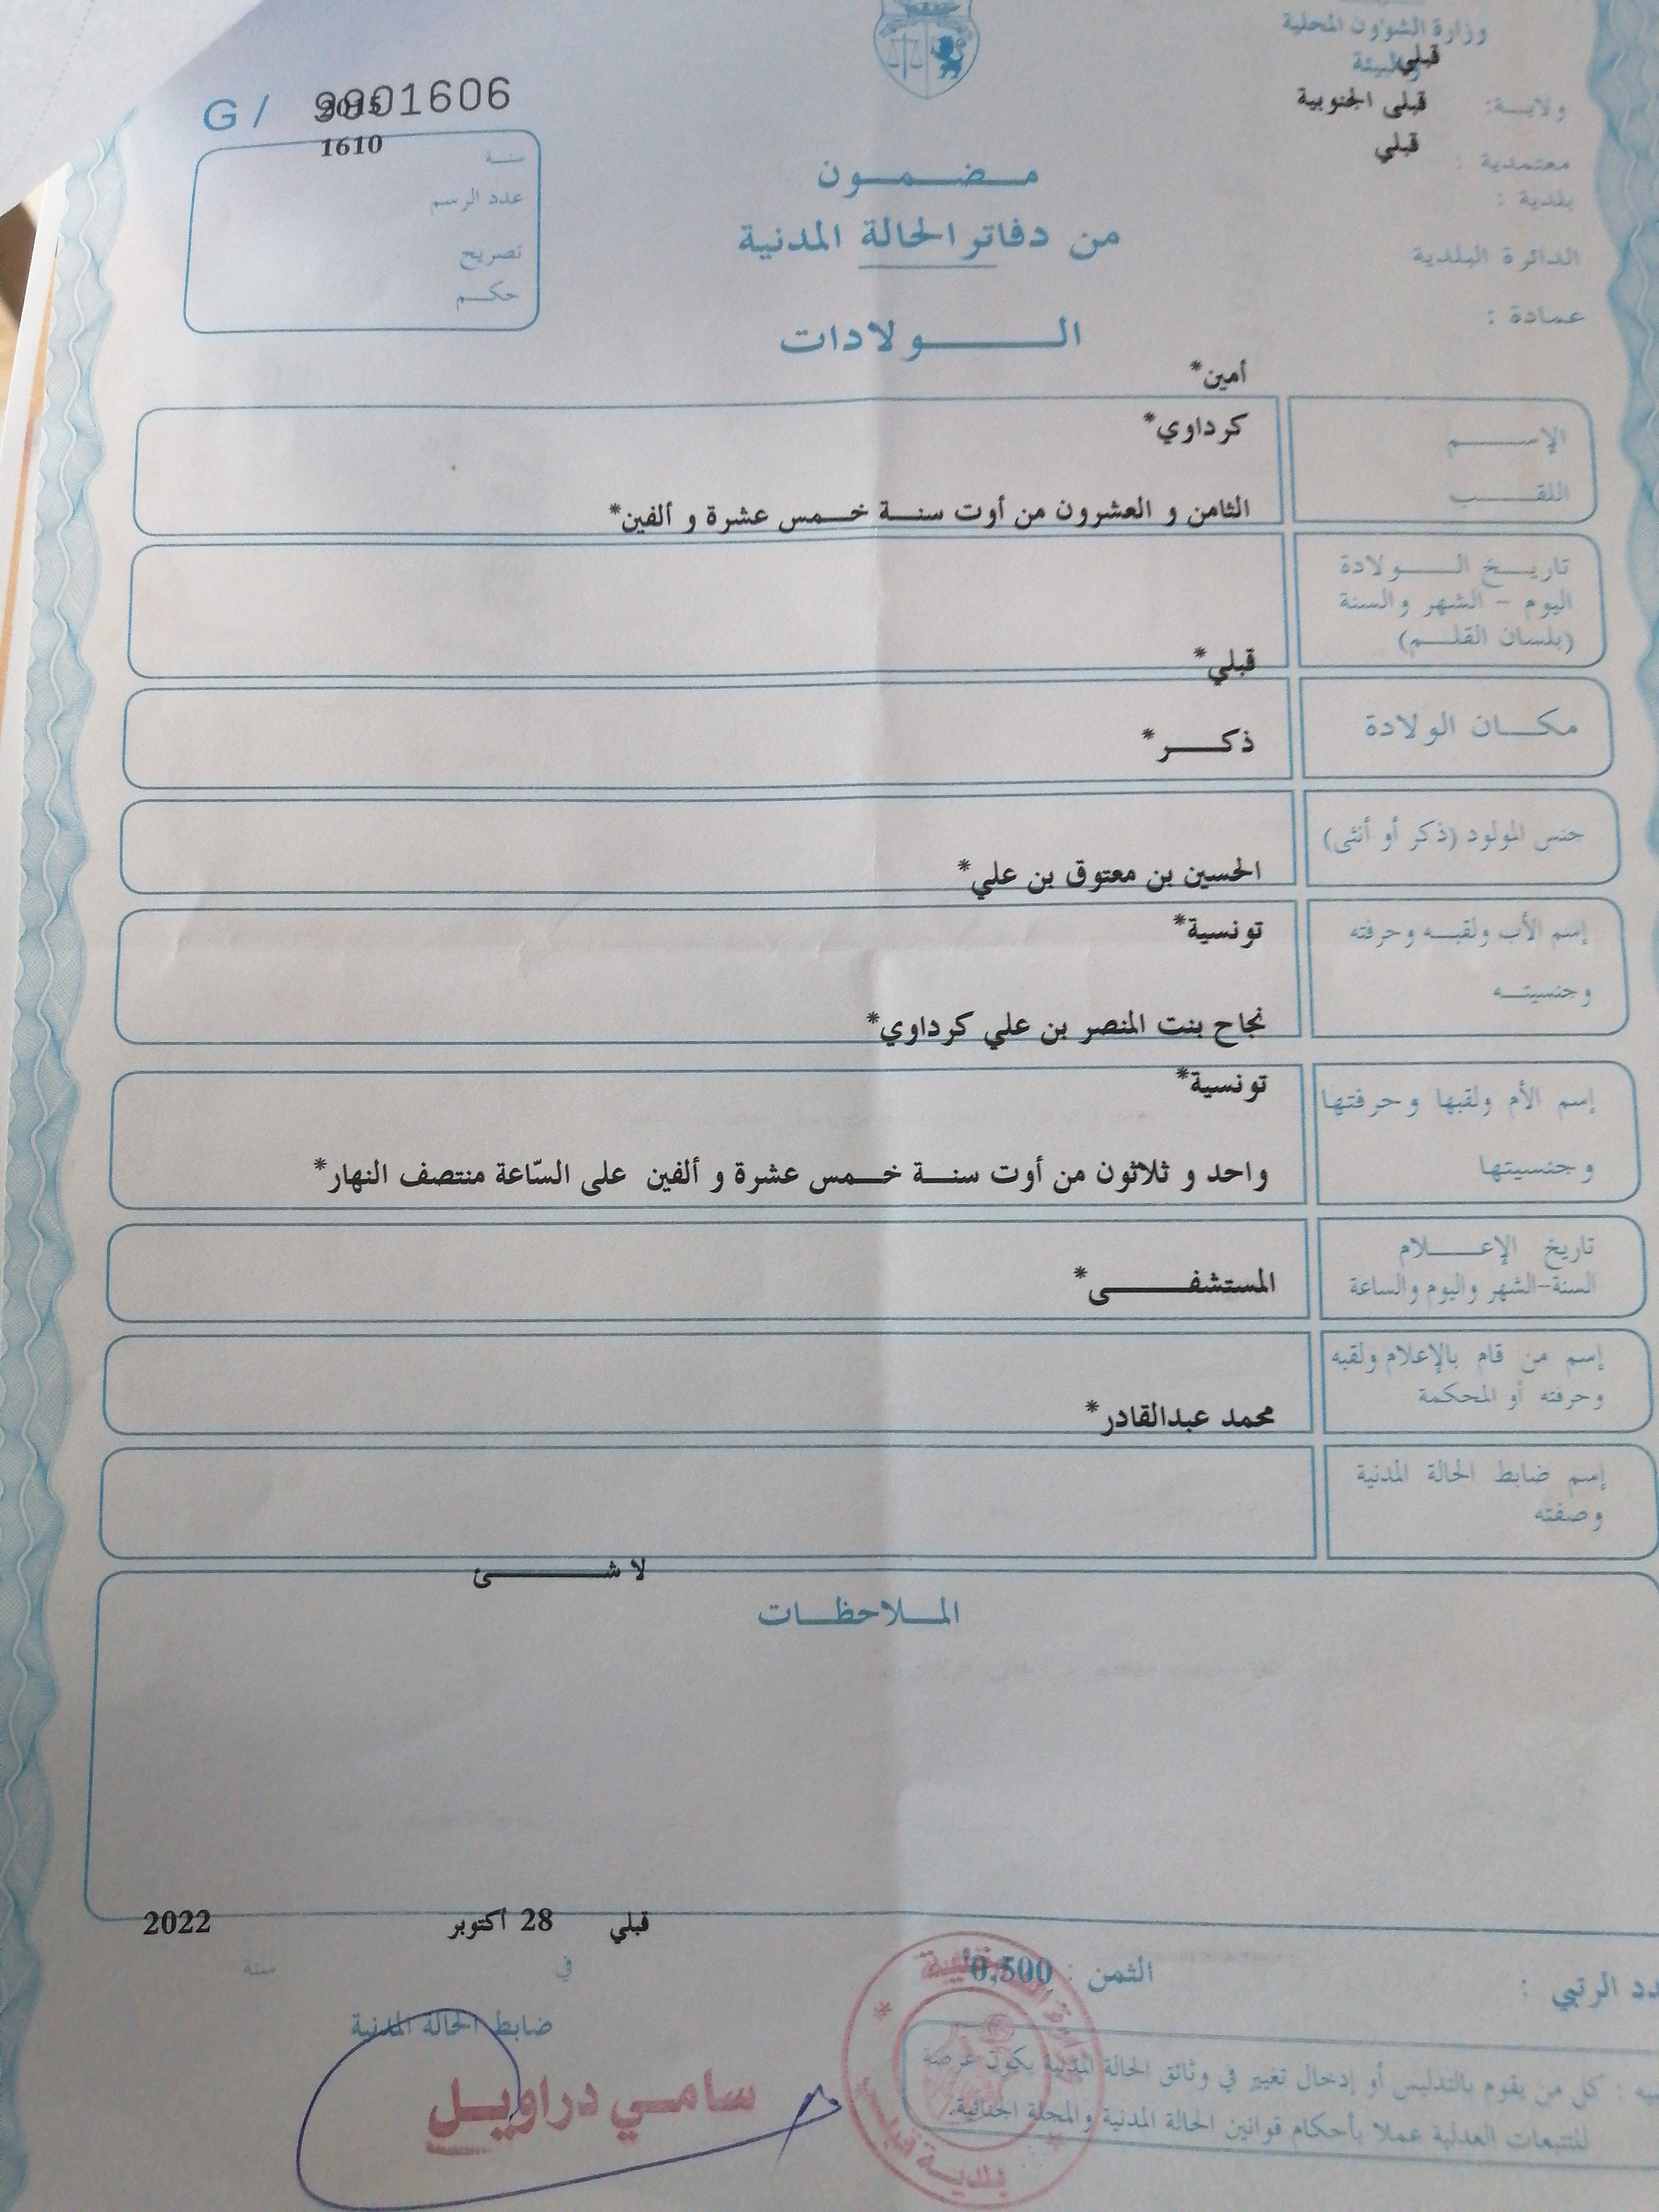 وزارة الشؤون المحلية
والبيئة
قبلي
ولاية:
قبلى الجنوبية
معتمدية :
قبلي
بلدية :
الدائرة البلدية
عمادة :
G / 9901606
2015
1610
سنة
عدد الرسم
تصريح
حكم
مضمون
من دفاتر الحالة المدنية
الولادات
أمين*
الإسم
كرداوي*
اللقب
الثامن و العشرون من أوت سنة خمس عشرة و ألفين*
تاريخ الولادة
اليوم - الشهر والسنة
(بلسان القلم)
قبلي*
مكان الولادة
ذكر*
جنس المولود (ذكر أو أنثى)
الحسين بن معتوق بن علي*
إسم الأب ولقبه وحرفته
تونسية*
وجنسيته
نجاح بنت المنصر بن علي كرداوي*
إسم الأم ولقبها وحرفتها
تونسية*
وجنسيتها
واحد و ثلاثون من أوت سنة خمس عشرة و ألفين على السّاعة منتصف النهار*
تاريخ الإعلام
السنة-الشهر واليوم والساعة
المستشفى*
إسم من قام بالإعلام ولقبه
وحرفته أو المحكمة
محمد عبدالقادر*
إسم ضابط الحالة المدنية
وصفته
لا شئ
الملاحظات
قبلي 28 أكتوبر 2022
في سنة
ضابط الحالة المدنية
سامي دراويل
الثمن : 0,500
الرتبي :
كل من يقوم بالتدليس أو إدخال تغيير في وثائق الحالة المدنية يكون عرضة
للتتبعات العدلية عملا بأحكام قوانين الحالة المدنية والمجلة الجنائية.
بلدية قبلي